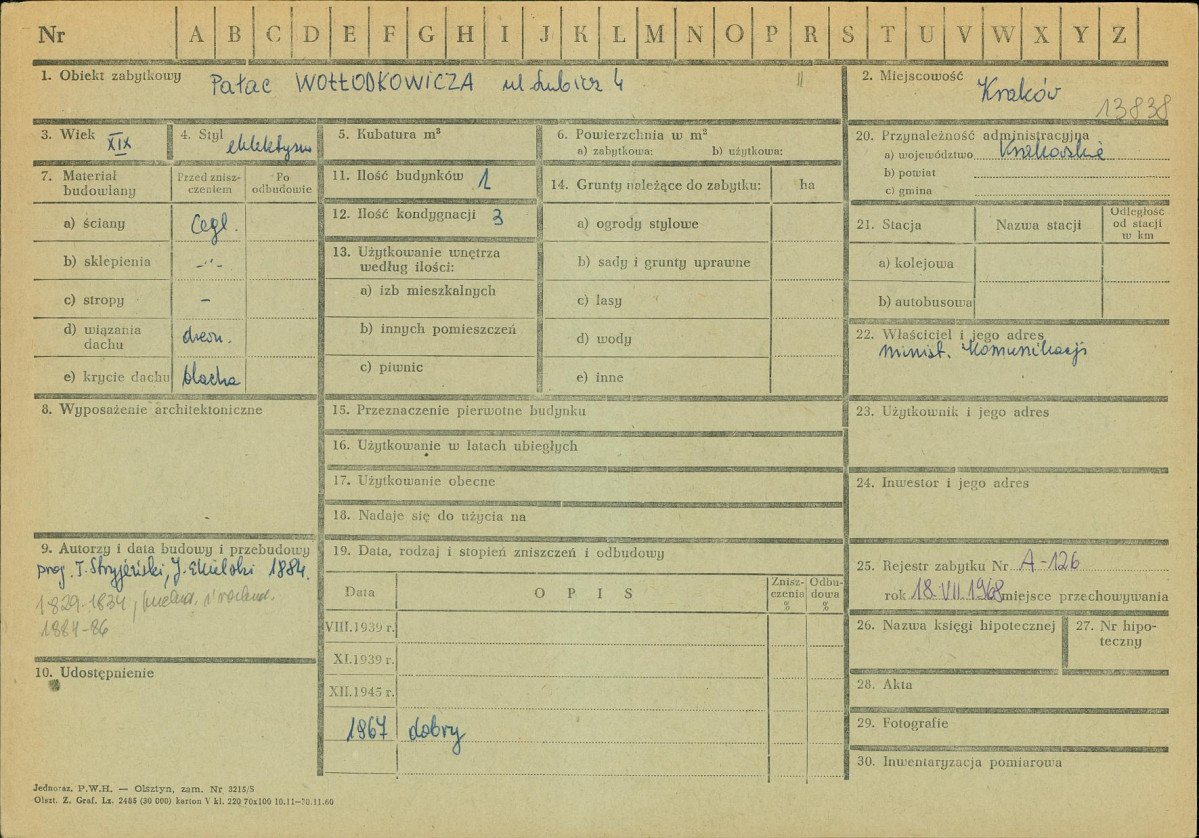 Nr A B C D E F G H I J K L M N O P R S T U V W X Y Z
1. Obiekt zabytkowy Pałac WOŁŁODKOWICZA ul Lubicz 4
2. Miejscowość Kraków
13838
3. Wiek XIX
4. Styl eklektyzm
5. Kubatura m³
6. Powierzchnia w m²
a) zabytkowa: b) użytkowa:
7. Materiał budowlany
Przed zniszczeniem
Po odbudowie
a) ściany cegł.
b) sklepienia -"-
c) stropy -
d) wiązania dachu drewn.
e) krycie dachu blacha
8. Wyposażenie architektoniczne
9. Autorzy i data budowy i przebudowy
proj. T. Stryjeński, J. Ekielski 1884.
1829-1834,
1884-86
10. Udostępnienie
11. Ilość budynków 1
12. Ilość kondygnacji 3
13. Użytkowanie wnętrza
według ilości:
a) izb mieszkalnych
b) innych pomieszczeń
c) piwnic
14. Grunty należące do zabytku: ha
a) ogrody stylowe
b) sady i grunty uprawne
c) lasy
d) wody
e) inne
15. Przeznaczenie pierwotne budynku
16. Użytkowanie w latach ubiegłych
17. Użytkowanie obecne
18. Nadaje się do użycia na
19. Data, rodzaj i stopień zniszczeń i odbudowy
Data OPIS Zniszczenia % Odbudowa %
VIII.1939 r.
XI.1939 r.
XII.1945 r.
1967 dobry
20. Przynależność administracyjna
a) województwo Krakowskie
b) powiat
c) gmina
21. Stacja Nazwa stacji Odległość od stacji w km
a) kolejowa
b) autobusowa
22. Właściciel i jego adres
Minist. Komunikacji
23. Użytkownik i jego adres
24. Inwestor i jego adres
25. Rejestr zabytku Nr A-126
rok 18.VII.1968 miejsce przechowywania
26. Nazwa księgi hipotecznej
27. Nr hipoteczny
28. Akta
29. Fotografie
30. Inwentaryzacja pomiarowa
Jednoraz. P.W.H. — Olsztyn, zam. Nr 3215/S
Olszt. Z. Graf. Lz. 2485 (30 000) karton V kl. 220 70x100 10.11—30.11.60